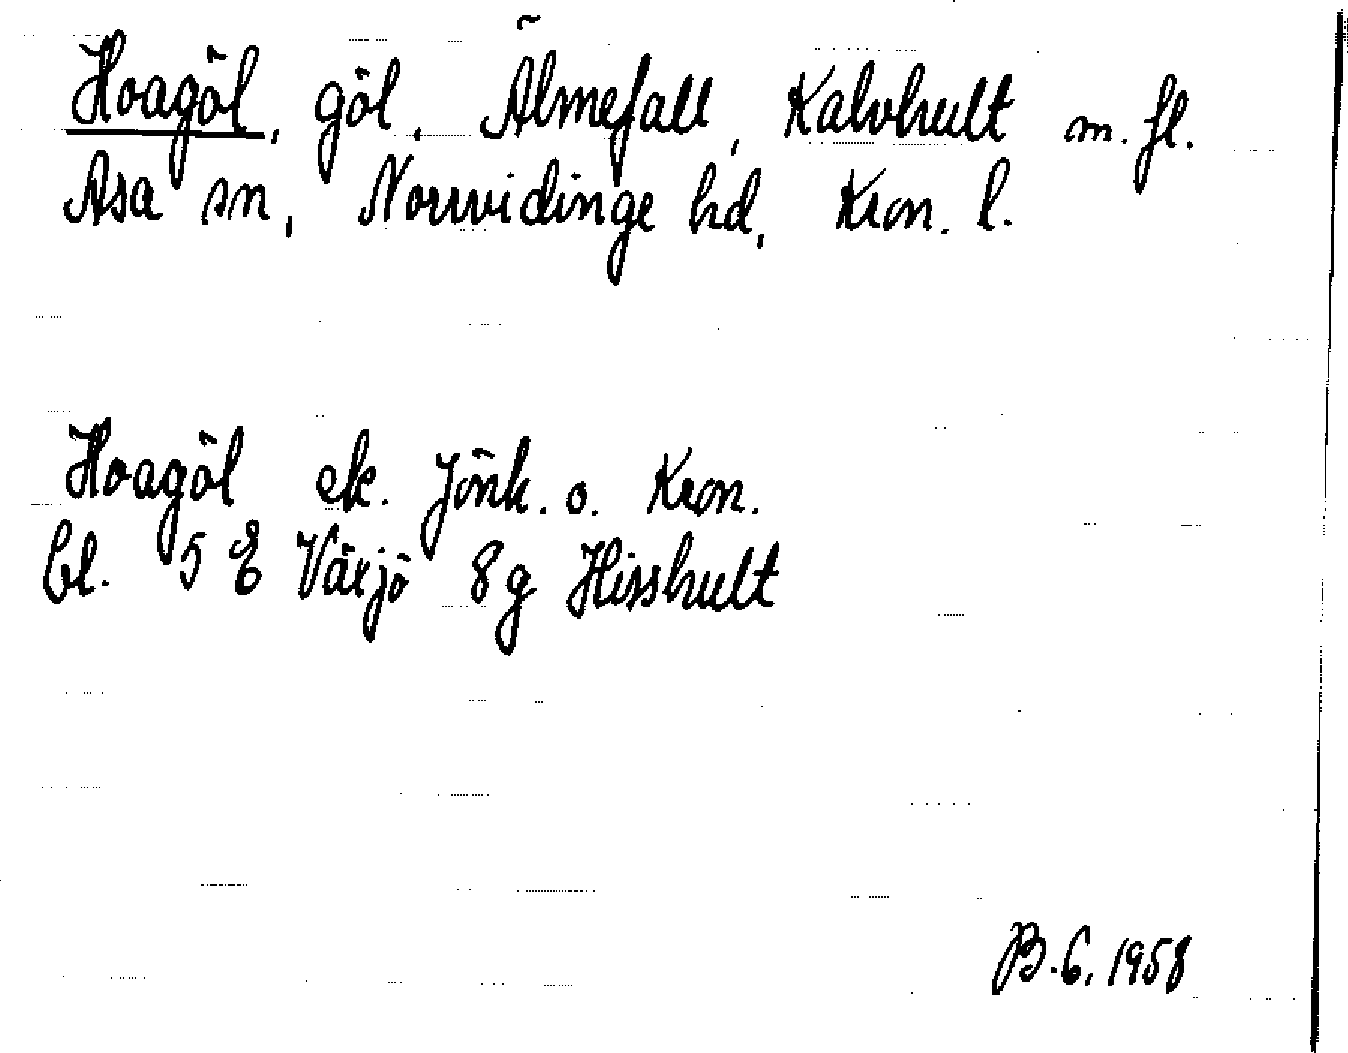 Hoagöl, göl, Älmefall, Kalvhult m. fl.
Asa sn, Norrvidinge hd, Kron. l.
Hoagöl ek. Jönk. o. Kron.
bl. 5 E Växjö 8g Hisshult
B.G. 1958